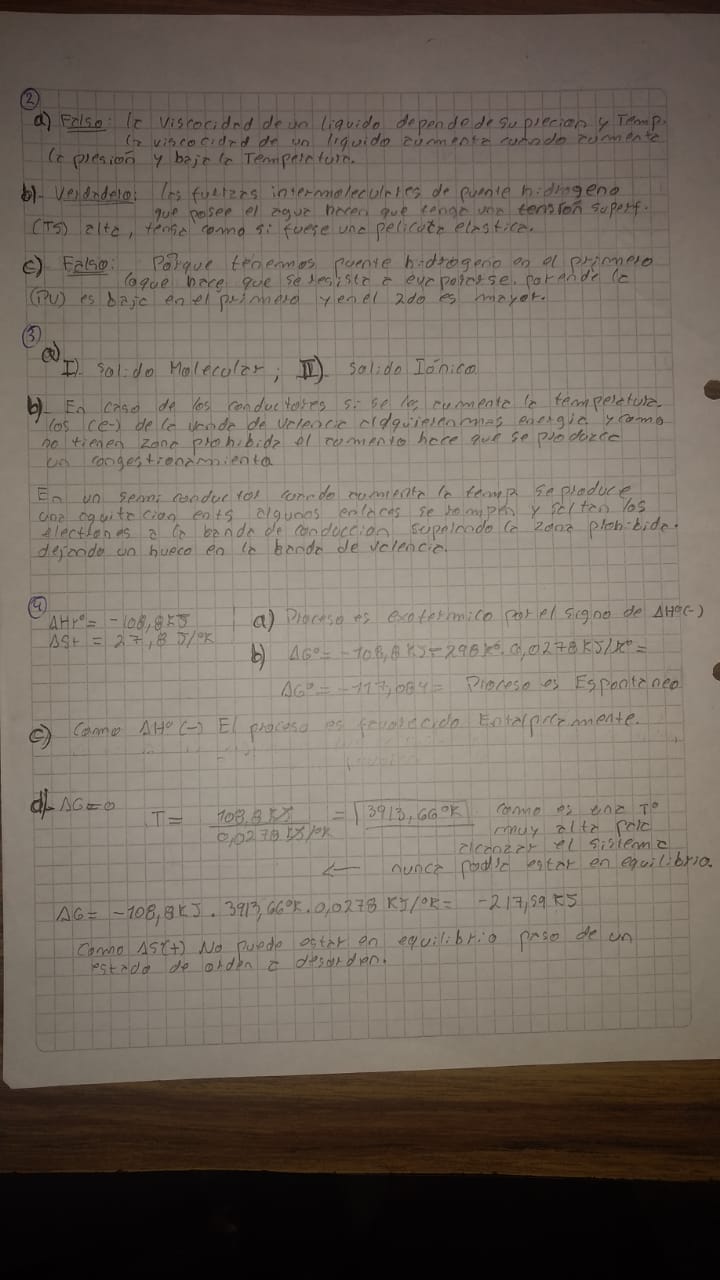 ②
a) Falso: la viscocidad de un liquido depende de su precion y Temp.
la viscocidad de un liquido aumenta cuando aumenta
la presion y baja la Temperatura.
b)- Verdadero: las fuerzas intermoleculares de puente hidrogeno
que posee el agua hacen que tenga una tension superf.
(TS) alta, tensa como si fuese una pelicula elastica.
c) Falso: Porque tenemos puente hidrogeno en el primero
loque hace que se resista a evaporarse. por ende la
(PV) es baja en el primero y en el 2do es mayor.
③
a)
I). Solido Molecular ; II). Solido Iónico
b)- En caso de los conductores si se les aumenta la temperatura.
los (e-) de la vanda de valencia adquieren mas energia y como
no tienen zona prohibida el aumento hace que se produzca
un congestionamiento
En un semi conductor cuando aumenta la temp se produce
una algunos enlaces se rompen y saltan los
electrones a la banda de conduccion superando la zona prohibida.
dejando un hueco en la banda de valencia.
④
ΔHr°= -108,8KJ
ΔSr = 27,8 J/°K
a) Proceso es exotermico por el signo de ΔH°(-)
b) ΔG°= -108,8KJ-298K°.0,0278KJ/K°=
ΔG°= -117,084= Proceso es Espontaneo
c) Como ΔH°(-) El proceso es favorecido Entalpicamente.
d)- ΔG=0
T= 108,8 KJ / 0,0278 KJ/°K = 3913,66°K como es una T°
muy alta para
alcanzar el sistema
← nunca podra estar en equilibrio.
ΔG= -108,8KJ . 3913,66°K.0,0278 KJ/°K= -217,59 KJ
Como ΔS(+) No puede estar en equilibrio paso de un
estado de orden a desorden.